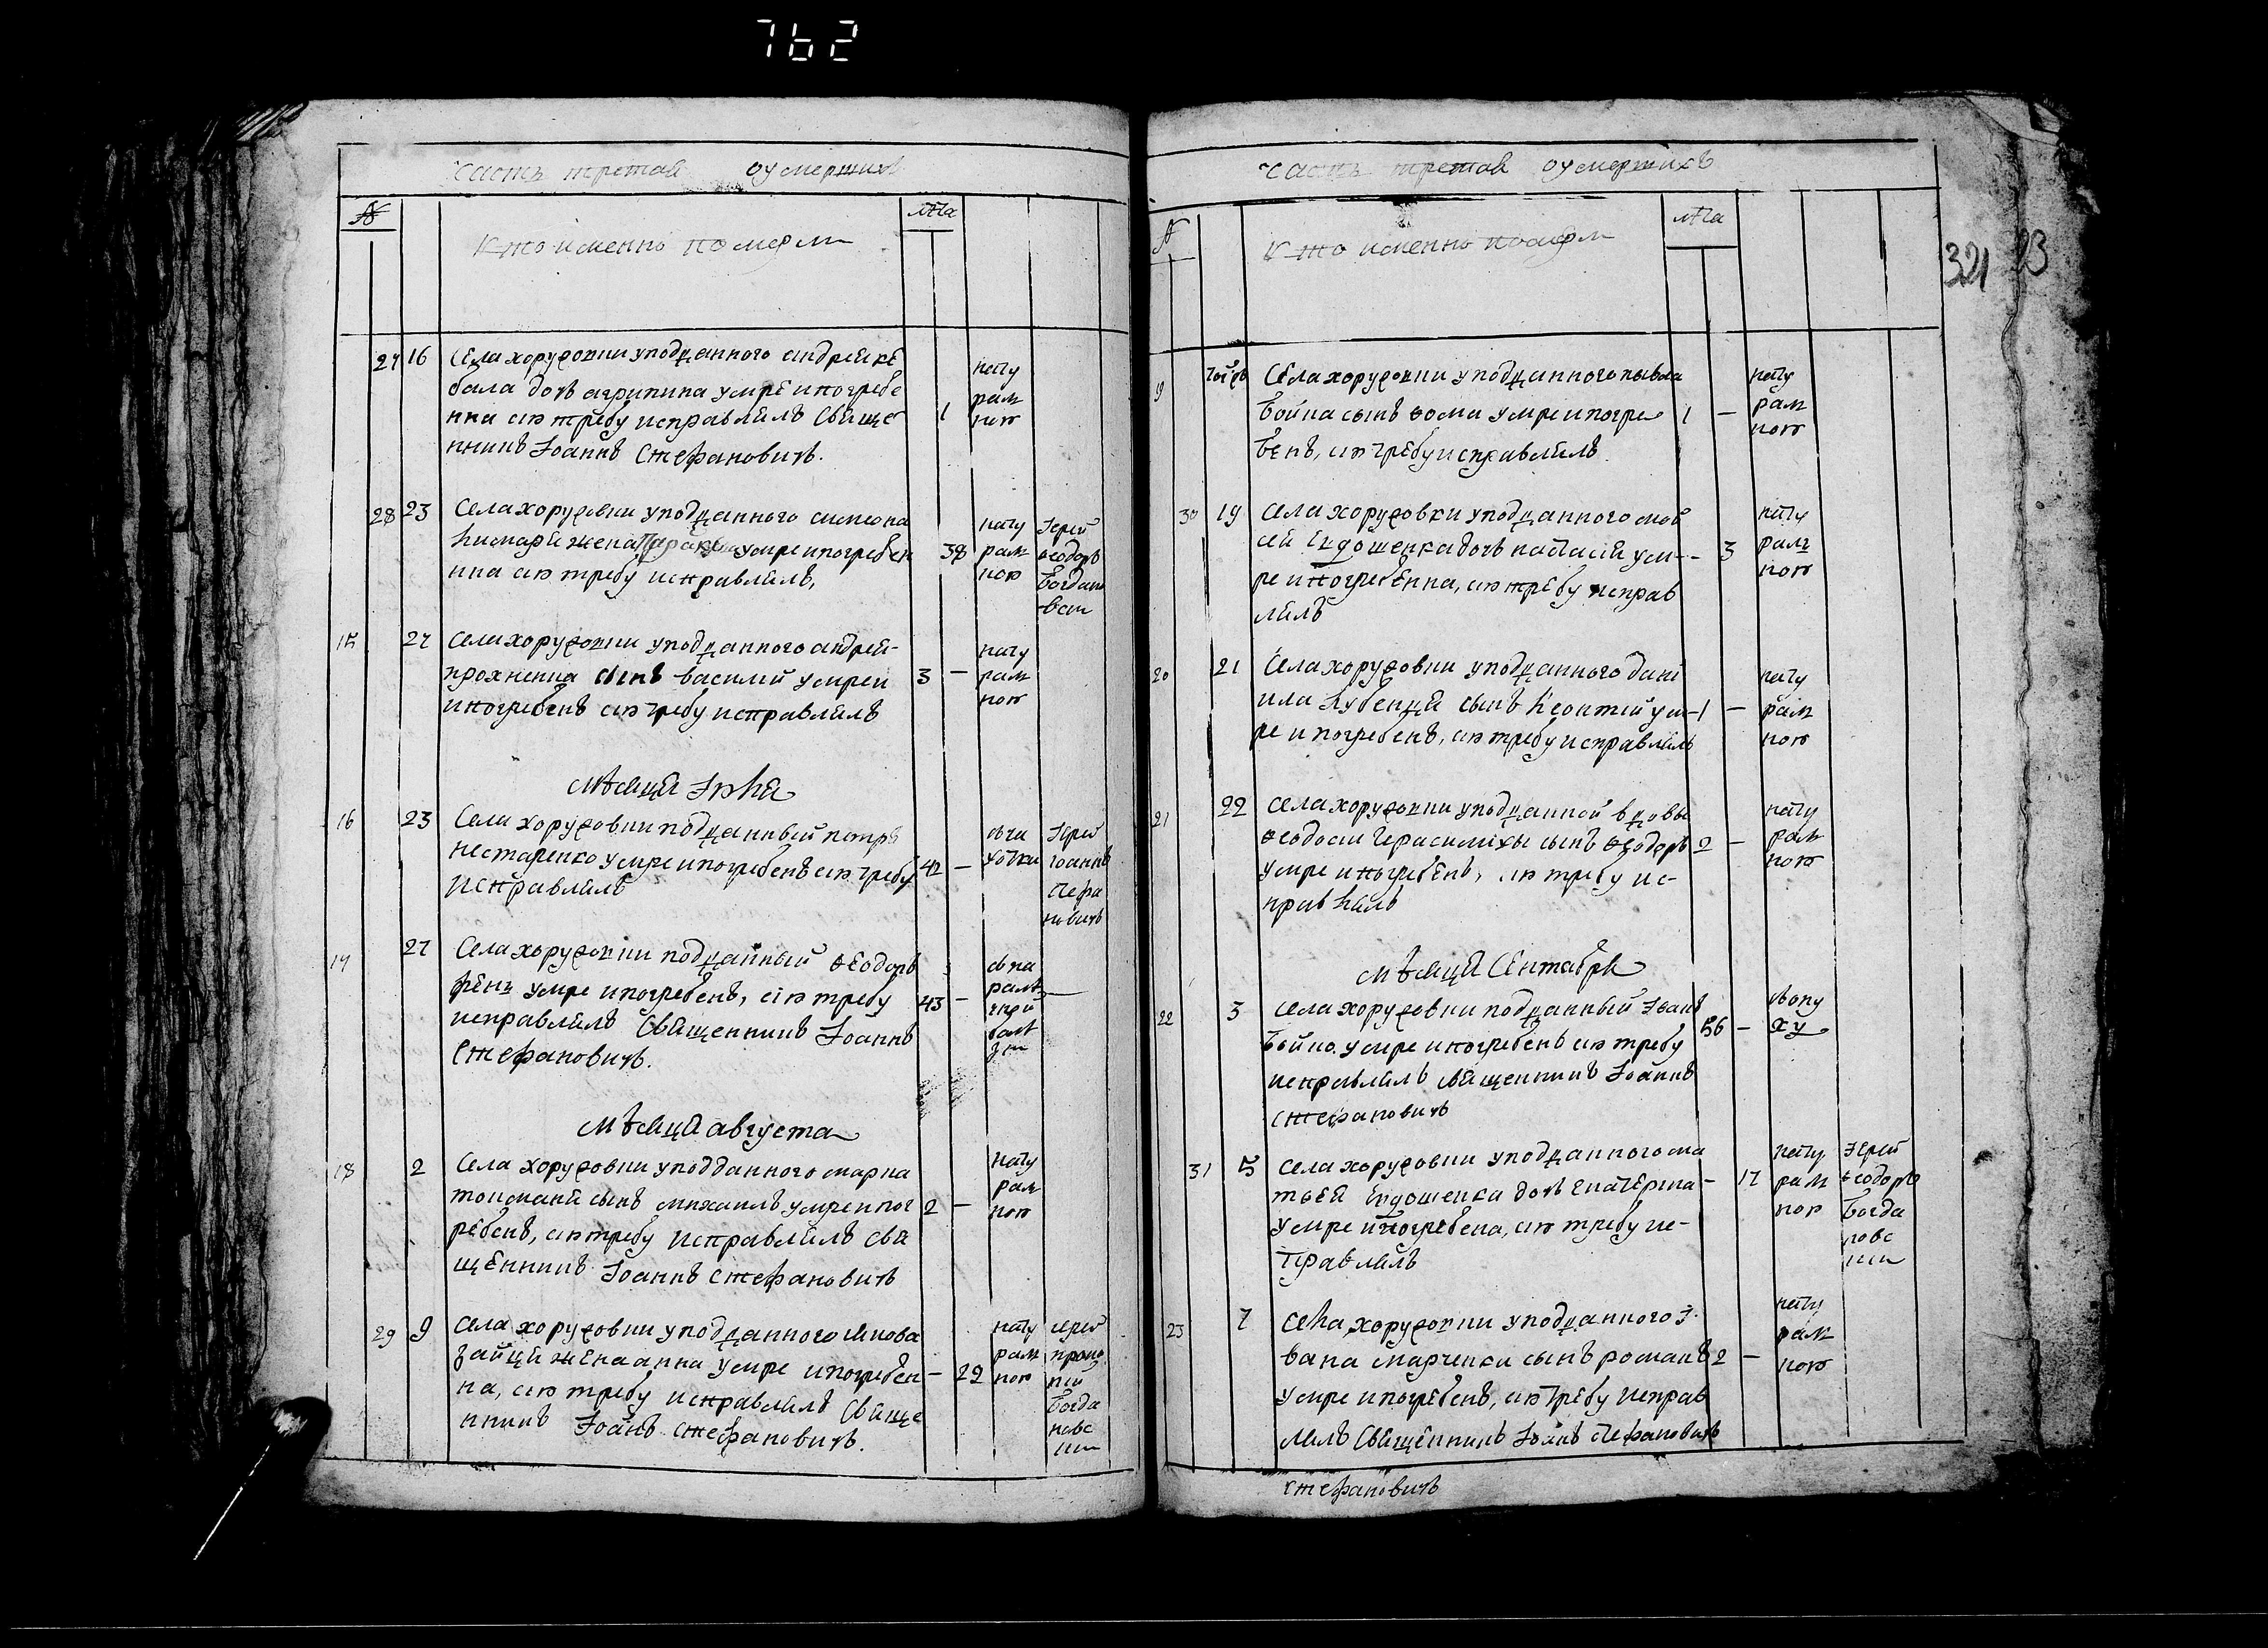 762
часть третая оумерших
№
лѣта
Кто именно померли
27 16 Села хоружовки уподданного андрея ке
бала дочъ агрипина умре и погребе
нна сию требу исправлялъ Свяще
нникъ Іоаннъ Стефановичъ.
1
нату
рал
ною
28 23 Села хоружовки уподданного симеона
жена умре и погребен
нна сию требу исправлялъ,
38
нату
рал
ною
Іерей
ѳеодоръ
Богдано
вски
15 27 Села хоружовки уподданного андрея
сынъ василий умре и
и погребенъ сию требу исправлялъ
3 —
нату
рал
ною
мѣсяця Іюля
16 23 Села хоружовки подданный петръ
нестаренко умре и погребенъ сию требу
исправлялъ
42 —
Іерей
Іоаннъ
стефа
новичъ
17 27 Села хоружовки подданный ѳеодоръ
умре и погребенъ, сию требу
исправлялъ Священникъ Іоаннъ
Стефановичъ.
43 —
мѣсяця августа
18 2 Села хоружовки уподданного марка
сынъ михаилъ умре и пог
ребенъ, сию требу исправлялъ свя
щенникъ Іоаннъ Стефановичъ
2 —
нату
рал
ною
29 9 Села хоружовки уподданного якова
зайця жена анна умре и погребен
на, сию требу исправлялъ Свяще
нникъ Іоанъ Стефановичъ.
— 22
нату
рал
ною
іерей
Богда
новс
ки
часть третая оумершихъ
321 23
№
лѣта
Кто именно померли
19 Села хоружовки уподданного
Бойка сынъ ѳома умре и погре
бенъ, сию требу исправлялъ
1 —
нату
рал
ною
30 19 Села хоружовки уподданного мой
сея дочъ настасия ум
ре и погребенна, сию требу исправ
лялъ
— 3
нату
рал
ною
20 21 Села хоружовки уподданного дани
ила сынъ Леонтий ум
ре и погребенъ, сию требу исправлялъ
1 —
нату
рал
ною
21 22 Села хоружовки уподданной вдовы
ѳеодосии Герасимихы сынъ ѳеодоръ
умре и погребенъ, сию требу ис-
правлялъ
2 —
нату
рал
ною
мѣсяця Сентября
22 3 Села хоружовки подданный Іванъ
Бойко умре и погребенъ сию требу
исправлялъ священникъ Іоаннъ
Стефановичъ
56 —
31 5 Села хоружовки уподданного ма
твея дочъ Екатерина
умре и погребена, сию требу ис-
правлялъ
— 17
нату
рал
ною
Іерей
ѳеодоръ
Богда
новс
ки
23 7 Села хоружовки уподданного І
вана марченка сынъ романъ
умре и погребенъ, сию требу исправ
лялъ Священникъ Іоанъ Стефановичъ
2 —
нату
рал
ною
Стефановичъ